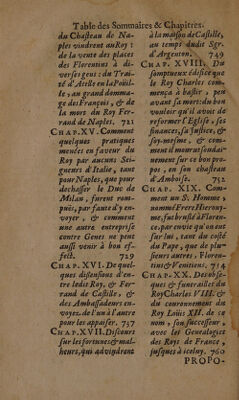 Table des Sommaires & Chapitres.
du Chasteau de Na-
ples vindrent au Roy :
de la vente des places
des Florentins à di-
vers gens : du Trai-
té d'Atelle en la Poüil-
le, au grand domma-
ge des François, & de
la mort du Roy Fer-
rand de Naples. 721
CHAP. XV. Comment
quelques pratiques
menées en faveur du
Roy par aucuns Sei-
gneurs d'Italie, tant
pour Naples, que pour
dechasser le Duc de
Milan, furent rom-
puës, par faute d'y en-
voyer, & comment
une autre entreprise
contre Genes ne peut
aussi venir à bon ef-
fect. 729
CHAP. XVI. De quel-
ques dissensions d'en-
tre ledit Roy, & Fer-
rand de Castille, &
des Ambassadeurs en-
voyez de l'un à l'autre
pour les appaiser. 737
CHAP. XVII. Discours
sur les fortunes & mal-
heurs, qui advindrent
à la maison de Castille,
au temps dudit Sgr.
d'Argenton. 749
CHAP. XVIII. Du
somptueux édifice que
le Roy Charles com-
mença à bastir, peu
avant sa mort: du bon
vouloir qu'il avoit de
reformer l'Eglise, ses
finances, sa justice, &
soy-mesme, & com-
ment il mourut soudai-
nement sur ce bon pro-
pos, en son chasteau
d'Amboise. 752
CHAP. XIX. Com-
ment un S. Homme,
nommé Frere Hierony-
me, fut bruslé à Floren-
ce, par envie qu'on eut
sur luy, tant du costé
du Pape, que de plu-
sieurs autres, Floren-
tins & Venitiens. 754
CHAP. XX. Des obse-
ques & funerailles du
Roy Charles VIII. &
du couronnement du
Roy Loüis XII. de ce
nom, son successeur,
avec les Genealogies
des Roys de France,
jusques à iceluy. 760
PROPO-